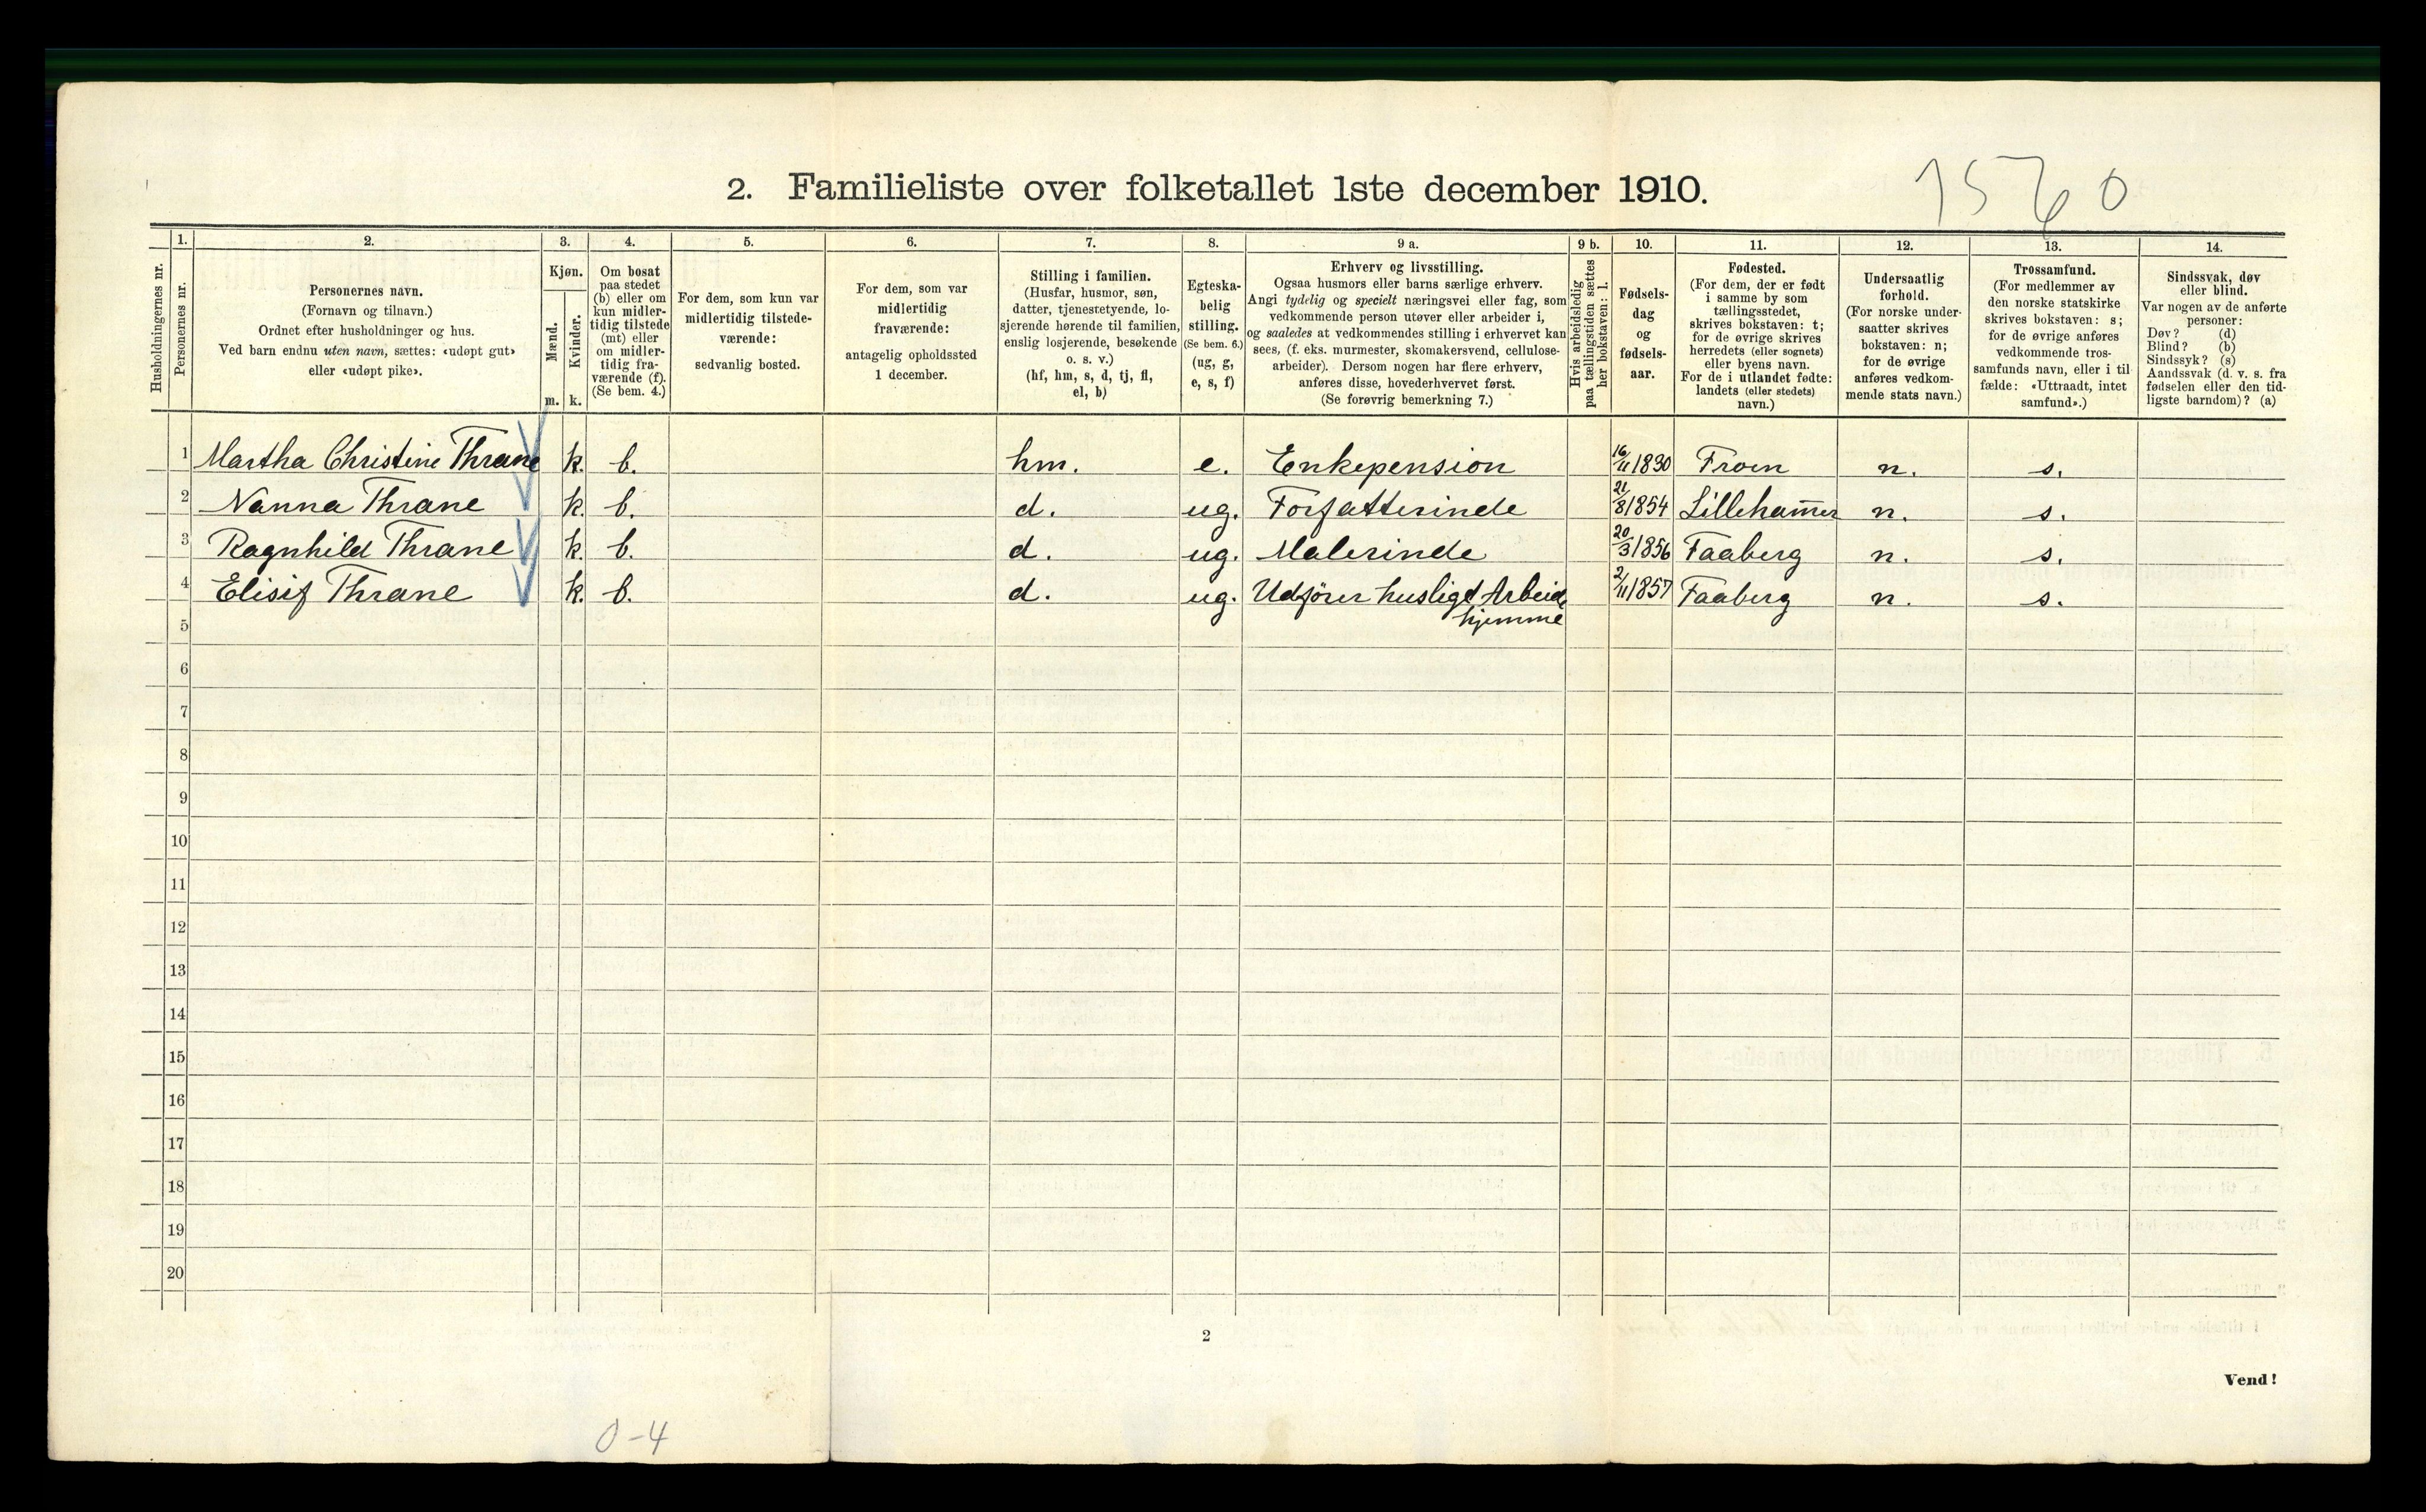 1560
2. Familieliste over folketallet 1ste december 1910.
Husholdningernes nr.
1.
Personernes nr.
2.
Personernes navn.
(Fornavn og tilnavn.)
Ordnet efter husholdninger og hus.
Ved barn endnu uten navn, sættes: «udøpt gut»
eller «udøpt pike».
3.
Kjøn.
Mænd.
Kvinder.
m. k.
4.
Om bosat
paa stedet
(b) eller om
kun midler-
tidig tilstede
(mt) eller
om midler-
tidig fra-
værende (f).
(Se bem. 4.)
5.
For dem, som kun var
midlertidig tilstede-
værende:
sedvanlig bosted.
6.
For dem, som var
midlertidig
fraværende:
antagelig opholdssted
1 december.
7.
Stilling i familien.
(Husfar, husmor, søn,
datter, tjenestetyende, lo-
sjerende hørende til familien,
enslig losjerende, besøkende
o. s. v.)
(hf, hm, s, d, tj, fl,
el, b)
8.
Egteska-
belig
stilling.
(Se bem. 6.)
(ug, g,
e, s, f)
9 a.
Erhverv og livsstilling.
Ogsaa husmors eller barns særlige erhverv.
Angi tydelig og specielt næringsvei eller fag, som
vedkommende person utøver eller arbeider i,
og saaledes at vedkommendes stilling i erhvervet kan
sees, (f. eks. murmester, skomakersvend, cellulose-
arbeider). Dersom nogen har flere erhverv,
anføres disse, hovederhvervet først.
(Se forøvrig bemerkning 7.)
9 b.
Hvis arbeidsledig
paa tællingstiden sættes
her bokstaven: l.
10.
Fødsels-
dag
og
fødsels-
aar.
11.
Fødested.
(For dem, der er født
i samme by som
tællingsstedet,
skrives bokstaven: t;
for de øvrige skrives
herredets (eller sognets)
eller byens navn.
For de i utlandet fødte:
landets (eller stedets)
navn.)
12.
Undersaatlig
forhold.
(For norske under-
saatter skrives
bokstaven: n;
for de øvrige
anføres vedkom-
mende stats navn.)
13.
Trossamfund.
(For medlemmer av
den norske statskirke
skrives bokstaven: s;
for de øvrige anføres
vedkommende tros-
samfunds navn, eller i til-
fælde: «Uttraadt, intet
samfund».)
14.
Sindssvak, døv
eller blind.
Var nogen av de anførte
personer:
Døv? (d)
Blind? (b)
Sindssyk? (s)
Aandssvak (d. v. s. fra
fødselen eller den tid-
ligste barndom)? (a)
1 Martha Christine Thrane k. b. hm. e. Enkepension 16/11 1830 Fron n. s.
2 Nanna Thrane k. b. d. ug. Forfatterinde 21/8 1854 Lillehammer n. s.
3 Ragnhild Thrane k. b. d. ug. Malerinde 20/3 1856 Faaberg n. s.
4 Elisif Thrane k. b. d. ug. Udfører husligt Arbeide 2/11 1857 Faaberg n. s.
hjemme
5
6
7
8
9
10
11
12
13
14
15
16
17
18
19
20
2
Vend!
0-4